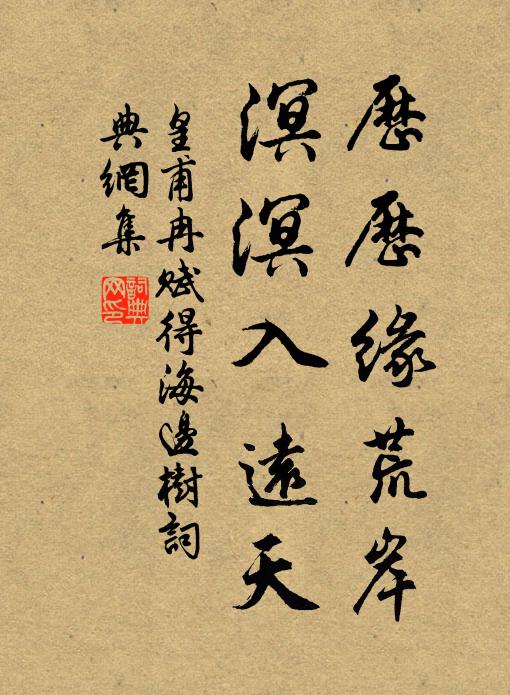 歷歷緣荒岸
溟溟入遠天
皇甫冉賦得海邊樹詞
典網集
詞典網印